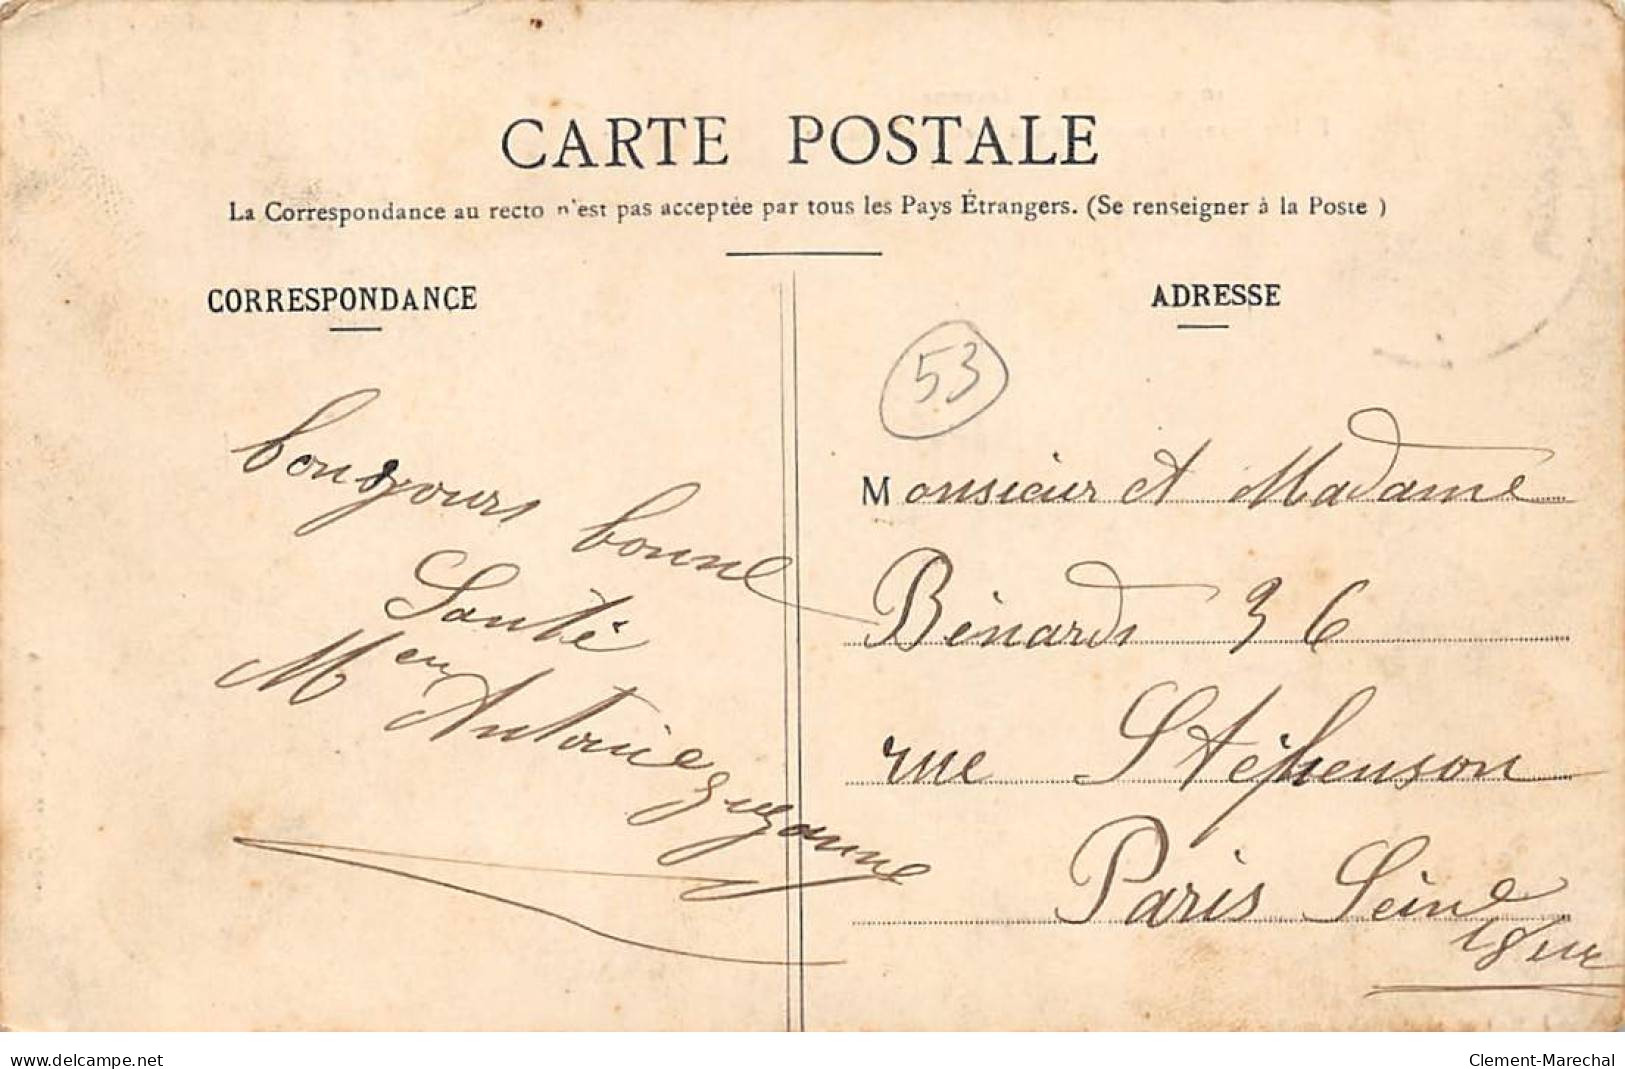 CARTE POSTALE
La Correspondance au recto n'est pas acceptée par tous les Pays Étrangers. (Se renseigner à la Poste )
CORRESPONDANCE
bongours bonne
Santé
M
Antoine Suzanne
ADRESSE
53
Monsieur et Madame
Bénard 36
rue Stéphenson
Paris Seine
18
www.delcampe.net
Clement-Marechal